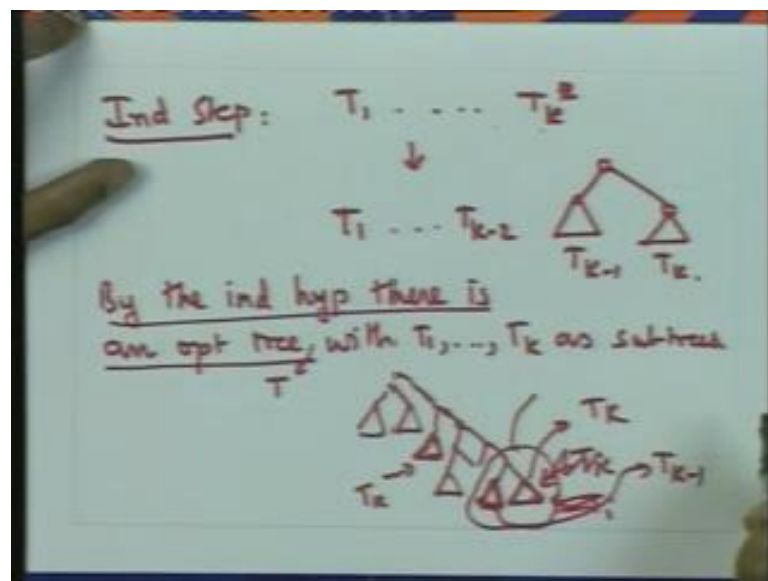 Ind Step: T₁ . . . . Tₖ
T₁ ... Tₖ₋₂
Tₖ₋₁ Tₖ.
By the ind hyp there is
an opt tree, with T₁, .., Tₖ as subtrees
T
Tₖ
Tₖ Tₖ₋₁
Tₖ